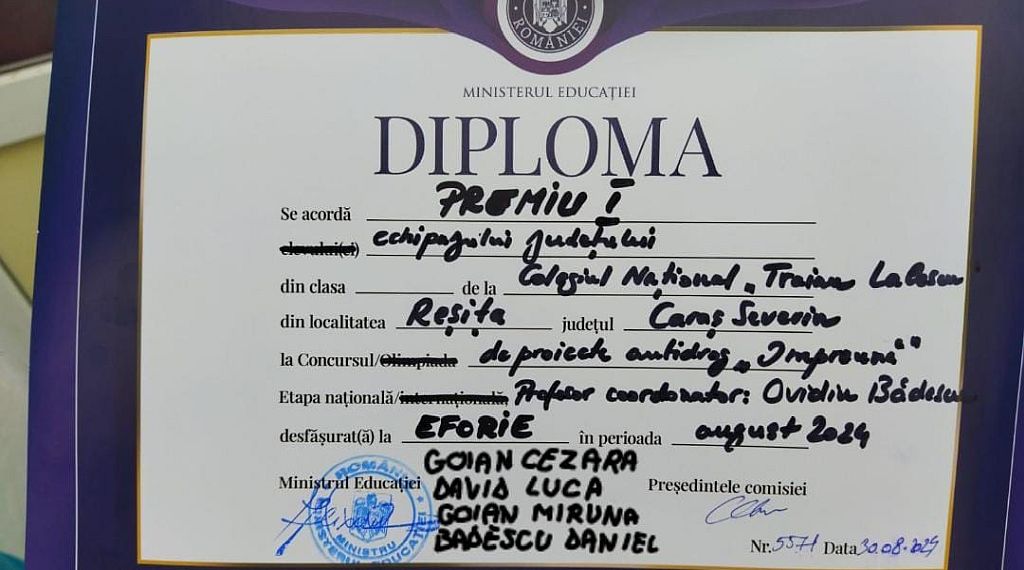 ROMÂNIEI
MINISTERUL EDUCAȚIEI
DIPLOMA
Se acordă PREMIU I
elevului(ei) echipajului județului
din clasa de la Colegiul Național „Traian Lalescu
din localitatea Reșița județul Caraș Severin
la Concursul/Olimpiada de proiecte antidrog „Împreună"
Etapa națională/internațională, Profesor coordonator: Ovidiu Bădescu
desfășurat(ă) la EFORIE în perioada august 2024
GOIAN CEZARA
Ministrul Educației DAVID LUCA Președintele comisiei
GOIAN MIRUNA
BĂDESCU DANIEL
ROMÂNIA
MINISTERUL EDUCAȚIEI
MINISTRU
Nr. 5571 Data 30.08.2024